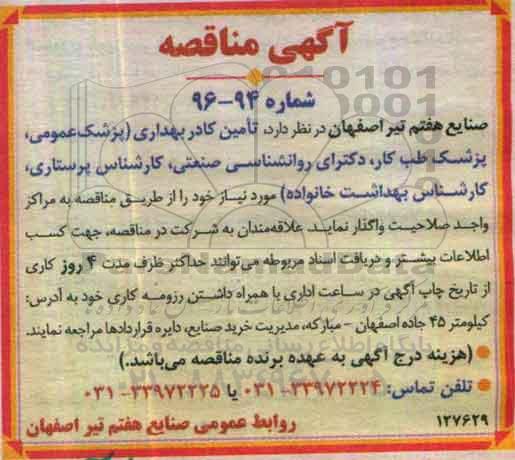 آگهی مناقصه
شماره ۹۴-۹۶
صنایع هفتم تیر اصفهان در نظر دارد، تأمین کادر بهداری (پزشک عمومی،
پزشک طب کار، دکترای روانشناسی صنعتی، کارشناس پرستاری،
کارشناس بهداشت خانواده) مورد نیاز خود را از طریق مناقصه به مراکز
واجد صلاحیت واگذار نماید. علاقه‌مندان به شرکت در مناقصه، جهت کسب
اطلاعات بیشتر و دریافت اسناد مربوطه می‌توانند حداکثر ظرف مدت ۴ روز کاری
از تاریخ چاپ آگهی در ساعت اداری با همراه داشتن رزومه کاری خود به آدرس:
کیلومتر ۴۵ جاده اصفهان - مبارکه، مدیریت خرید صنایع، دایره قراردادها مراجعه نمایند.
(هزینه درج آگهی به عهده برنده مناقصه می‌باشد.)
تلفن تماس: ۳۳۹۷۲۲۲۴-۰۳۱ یا ۳۳۹۷۲۲۲۵-۰۳۱
۱۲۷۶۲۹ روابط عمومی صنایع هفتم تیر اصفهان